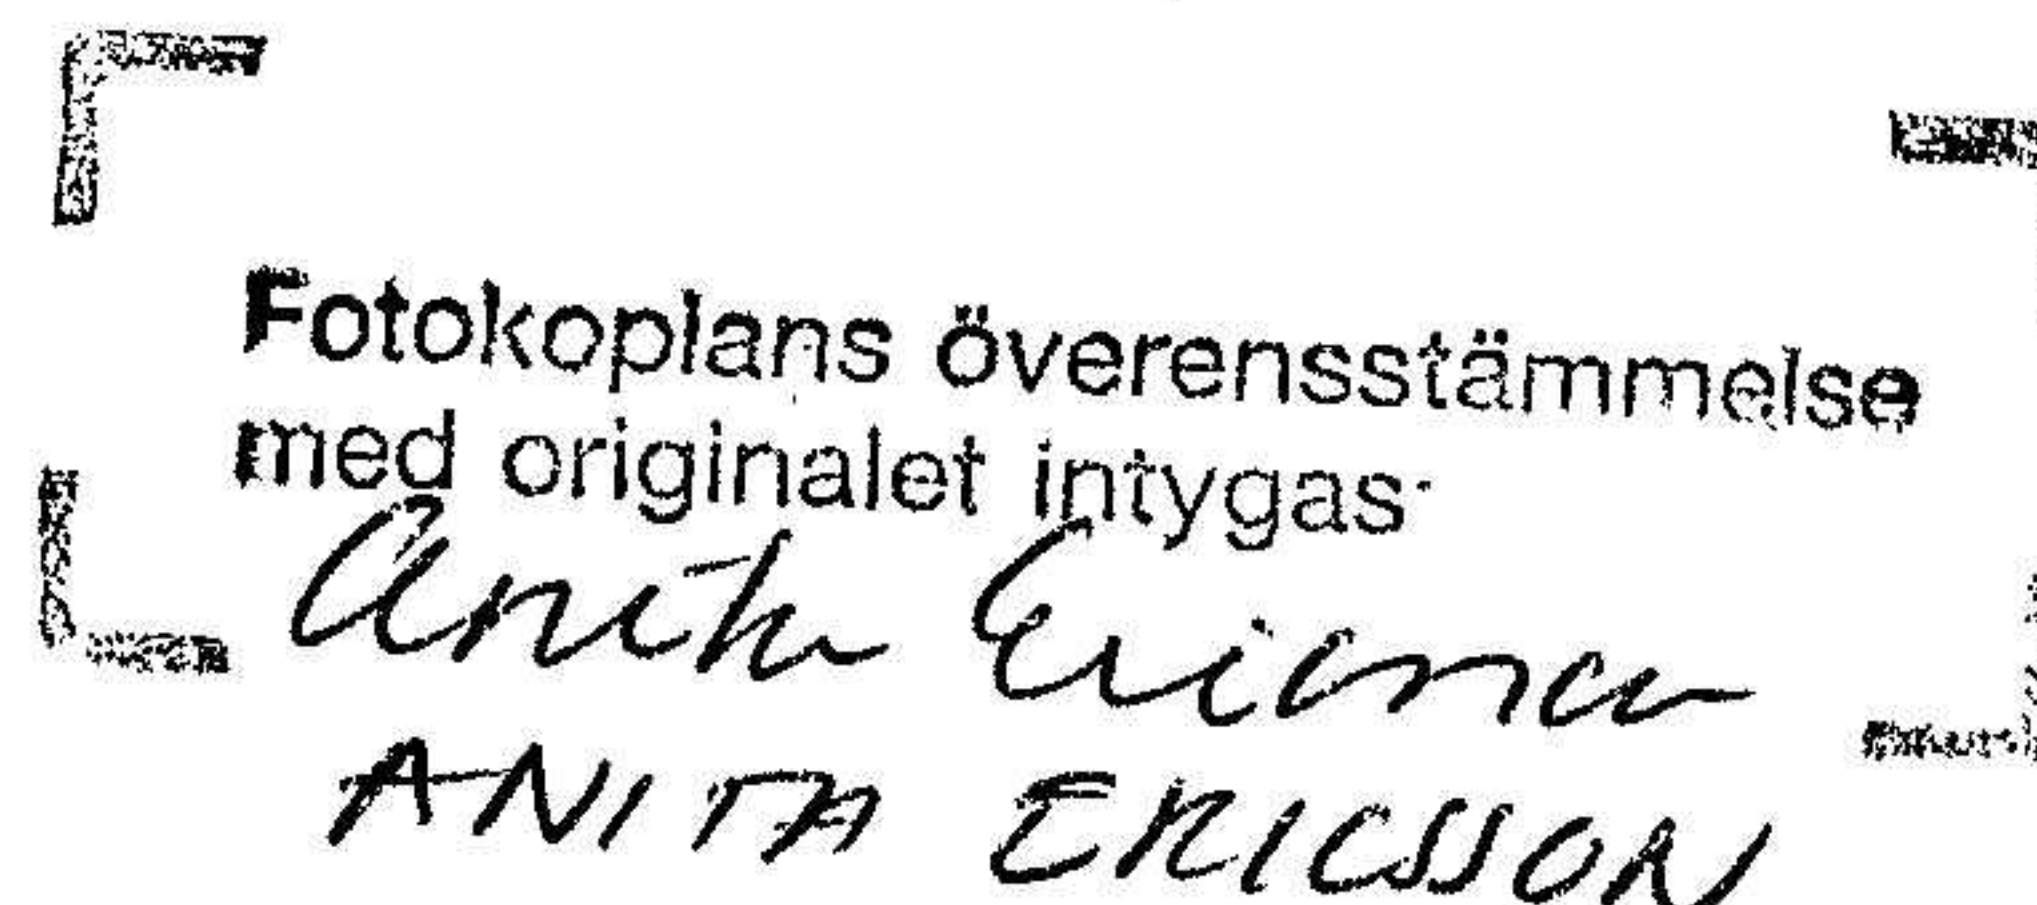 Fotokoplans överensstämmelse
med originalet intygas
Anita Ericsson
ANITA ERICSSON